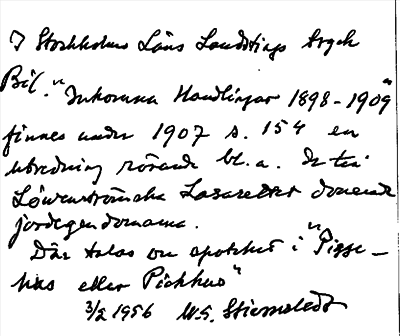 I Stockholms Läns Landstings tryck
Bil. "Inkomna Handlingar 1898-1909"
finnes under 1907 s. 154 en
utredning rörande bl.a. de till
Löwenströmska Lasarettet donerade
jordegendomarna.
Där talas om apotekets i "Pisse-
hus eller Pickhus"
3/2 1956 W.G. Stiernstedt